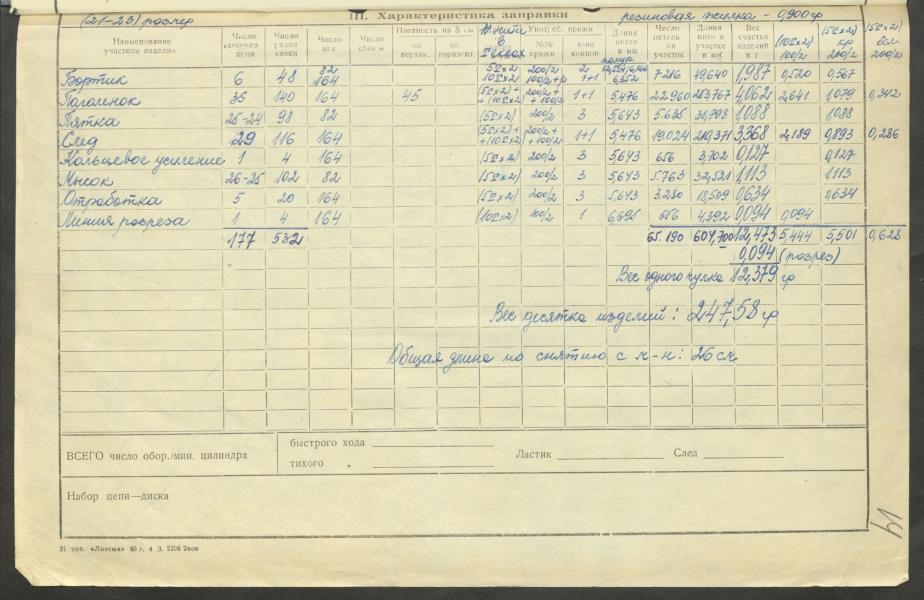 (21-23) размер III. Характеристика заправки резиновая жилка - 0,900 гр
Наименование участков изделия Число звеньев цепи Число рядов вязки Число игл Число Плотность на 5 см по вертик. по горизонт. № нити в Употреб. пряжи №№ пряжи к-во концов Длина петли в мм Число петель на участок Длина нити в участке в мм Вес участка изделий в г (10Т×2) 100/2 (5Т×2) кр 200/2 (5Т×2) бел. 200/2
Бортик 6 48 82 164 5Т×2) 10Т×2) 200/2 100/2+р 2 1+1 6352 7216 49640 1,987 0,520 0,567
Паголенок 35 140 164 45 (5Т×2)+ +(10Т×2) 200/2+ +100/2 1+1 5,476 22.960 253,767 4,062 2,641 1,079 0,342
Пятка 25-24 98 82 (5Т×2) 200/2 3 5,643 5.635 31,798 1,088 1,088
След 29 116 164 (5Т×2)+ +(10Т×2) 200/2+ +100/2 1+1 5,476 19.024 210,371 3,368 2,189 0,893 0,286
Кольцевое усиление 1 4 164 (5Т×2) 200/2 3 5,643 656 3,702 0,127 0,127
Мысок 26-25 102 82 (5Т×2) 200/2 3 5,643 5.763 32,521 1,113 1,113
Отработка 5 20 164 (5Т×2) 200/2 3 5,643 3.280 18,509 0,634 0,634
Линия разреза 1 4 164 (10Т×2) 100/2 1 6,695 656 4,392 0,094 0,094
177 532 65.190 604,700 12,473 5,444 5,501 0,628
0,094 (разрез)
Вес одного чулка 12,379 гр
Вес десятка изделий: 247,58 гр
Общая длина по снятию с м-н: 26 см
ВСЕГО число обор./мин. цилиндра быстрого хода
тихого „ Ластик След
Набор цепи—диска
21 тип. «Лиесма» 65 г. 4 З. 2296 2000